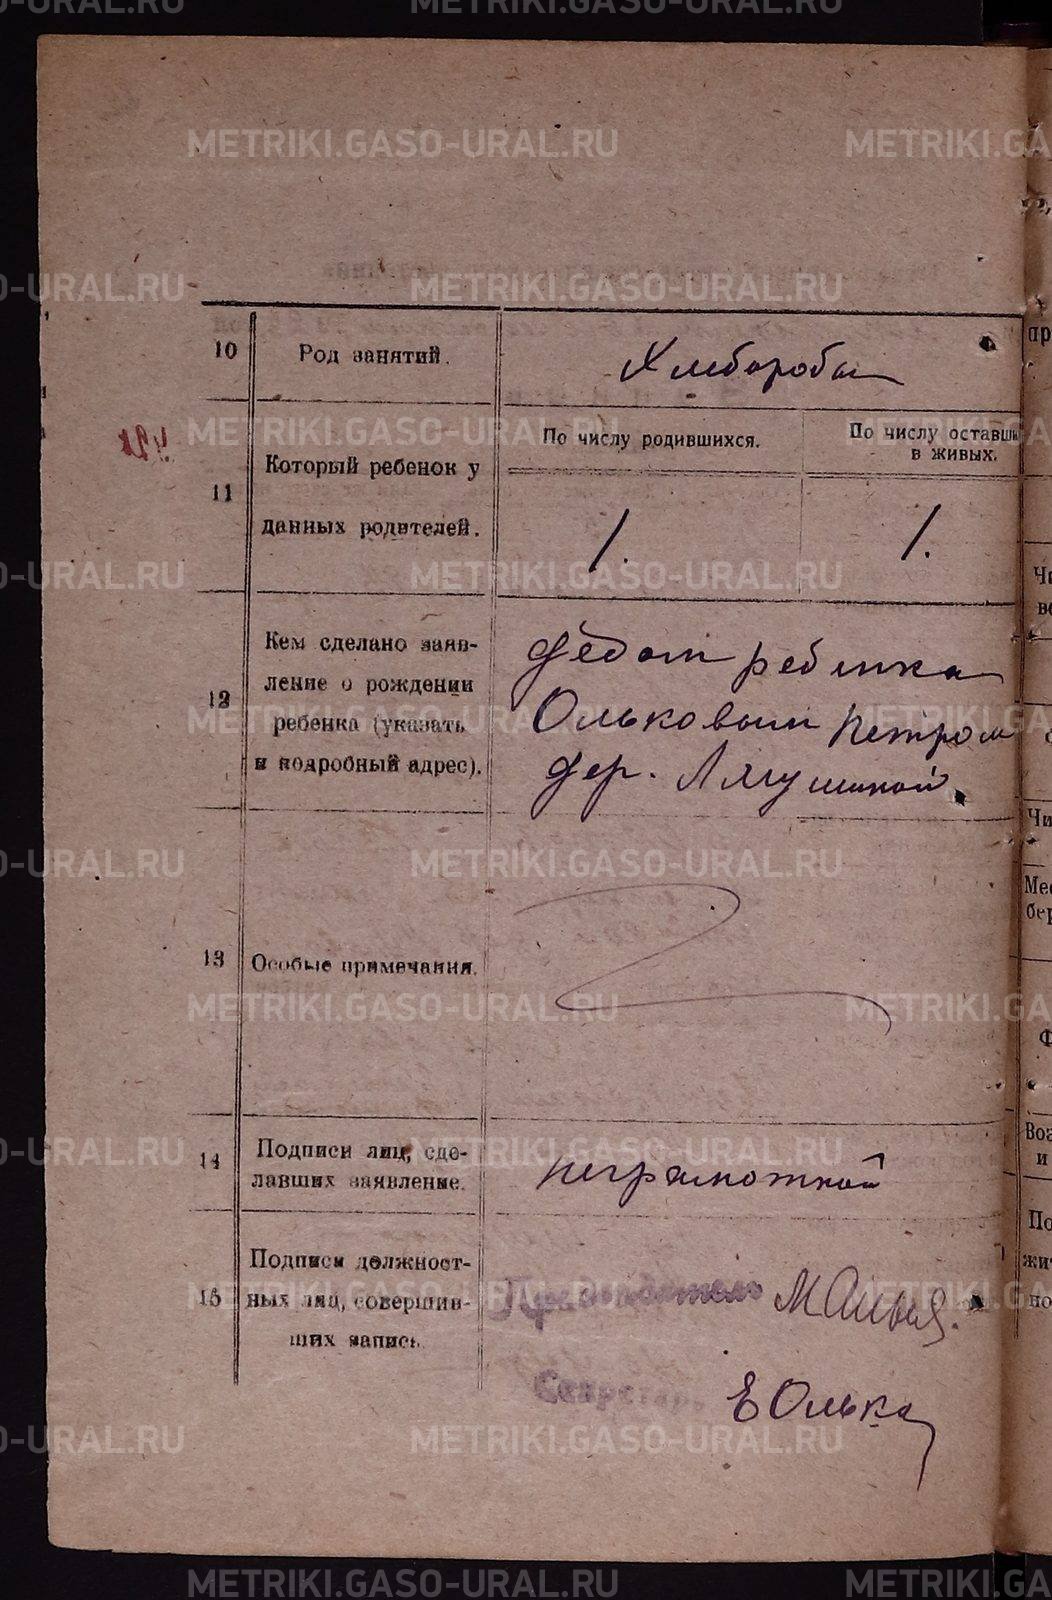 METRIKI.GASO-URAL.RU
10 Род занятий. Хлеборобы
11 Который ребенок у данных родителей.
По числу родившихся. По числу оставши
в живых.
1. 1.
12 Кем сделано заяв-
ление о рождении
ребенка (указать
и подробный адрес).
Дедом ребенка
Ольковым Петром
дер.
13 Особые примечания.
14 Подписи лиц, сде-
лавших заявление.
неграмотной
15 Подписи должност-
ных лиц, совершив-
ших запись.
Председатель
Секретарь Е Олька